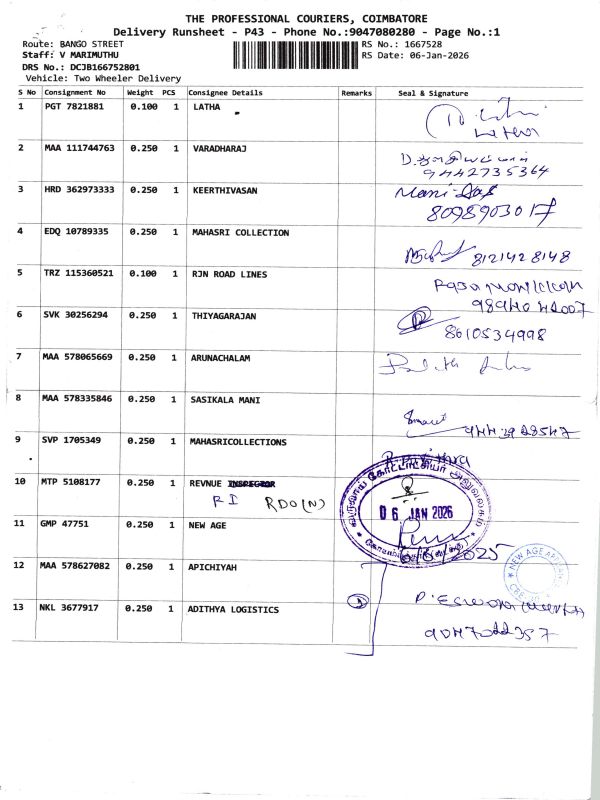 THE PROFESSIONAL COURIERS, COIMBATORE
Delivery Runsheet - P43 - Phone No.:9047080280 - Page No.:1
Route: BANGO STREET
RS No.: 1667528
Staff: V MARIMUTHU
RS Date: 06-Jan-2026
DRS No.: DCJB166752801
Vehicle: Two Wheeler Delivery
S No Consignment No Weight PCS Consignee Details Remarks Seal & Signature
1 PGT 7821881 0.100 1 LATHA
Latha
2 MAA 111744763 0.250 1 VARADHARAJ
9442735364
3 HRD 362973333 0.250 1 KEERTHIVASAN
8098903017
4 EDQ 10789335 0.250 1 MAHASRI COLLECTION
8121428148
5 TRZ 115360521 0.100 1 RJN ROAD LINES
6 SVK 30256294 0.250 1 THIYAGARAJAN
8610534998
7 MAA 578065669 0.250 1 ARUNACHALAM
8 MAA 578335846 0.250 1 SASIKALA MANI
9 SVP 1705349 0.250 1 MAHASRICOLLECTIONS
10 MTP 5108177 0.250 1 REVNUE INSPECTOR
RI RDO(N)
வருவாய் கோட்டாட்சியர் அலுவலகம்
06 JAN 2026
11 GMP 47751 0.250 1 NEW AGE
NEW AGE
12 MAA 578627082 0.250 1 APICHIYAH
13 NKL 3677917 0.250 1 ADITHYA LOGISTICS